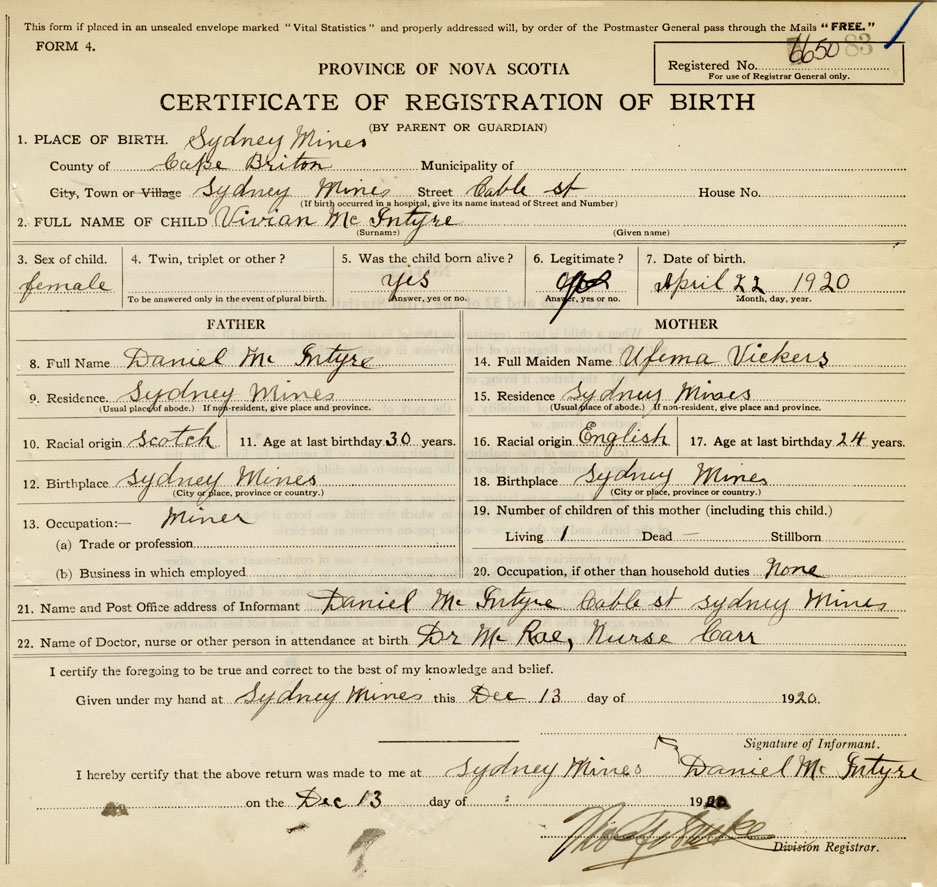 This form if placed in an unsealed envelope marked "Vital Statistics" and properly addressed will, by order of the Postmaster General pass through the Mails "FREE."
FORM 4.
6650 83
Registered No.
For use of Registrar General only.
PROVINCE OF NOVA SCOTIA
CERTIFICATE OF REGISTRATION OF BIRTH
(BY PARENT OR GUARDIAN)
1. PLACE OF BIRTH. Sydney Mines
County of Cape Briton Municipality of
City, Town or Village Sydney Mines Street Cable st House No.
(If birth occurred in a hospital, give its name instead of Street and Number)
2. FULL NAME OF CHILD Vivian Mc Intyre
(Surname) (Given name)
3. Sex of child. 4. Twin, triplet or other ? 5. Was the child born alive ? 6. Legitimate ? 7. Date of birth.
female yes yes April 22 1920
To be answered only in the event of plural birth. Answer, yes or no. Answer, yes or no. Month, day, year.
FATHER MOTHER
8. Full Name Daniel Mc Intyre 14. Full Maiden Name Ufema Vickers
9. Residence. Sydney Mines 15. Residence Sydney Mines
(Usual place of abode.) If non-resident, give place and province. (Usual place of abode.) If non-resident, give place and province.
10. Racial origin Scotch 11. Age at last birthday 30 years. 16. Racial origin English 17. Age at last birthday 24 years.
12. Birthplace Sydney Mines 18. Birthplace Sydney Mines
(City or place, province or country.) (City or place, province or country.)
13. Occupation:— Miner 19. Number of children of this mother (including this child.)
(a) Trade or profession Living 1 Dead — Stillborn
(b) Business in which employed 20. Occupation, if other than household duties None
21. Name and Post Office address of Informant Daniel Mc Intyre Cable st Sydney Mines
22. Name of Doctor, nurse or other person in attendance at birth Dr Mc Rae, Nurse Carr
I certify the foregoing to be true and correct to the best of my knowledge and belief.
Given under my hand at Sydney Mines this Dec 13 day of 1920.
Signature of Informant.
I hereby certify that the above return was made to me at Sydney Mines Daniel Mc Intyre
on the Dec 13 day of 1920
Division Registrar.